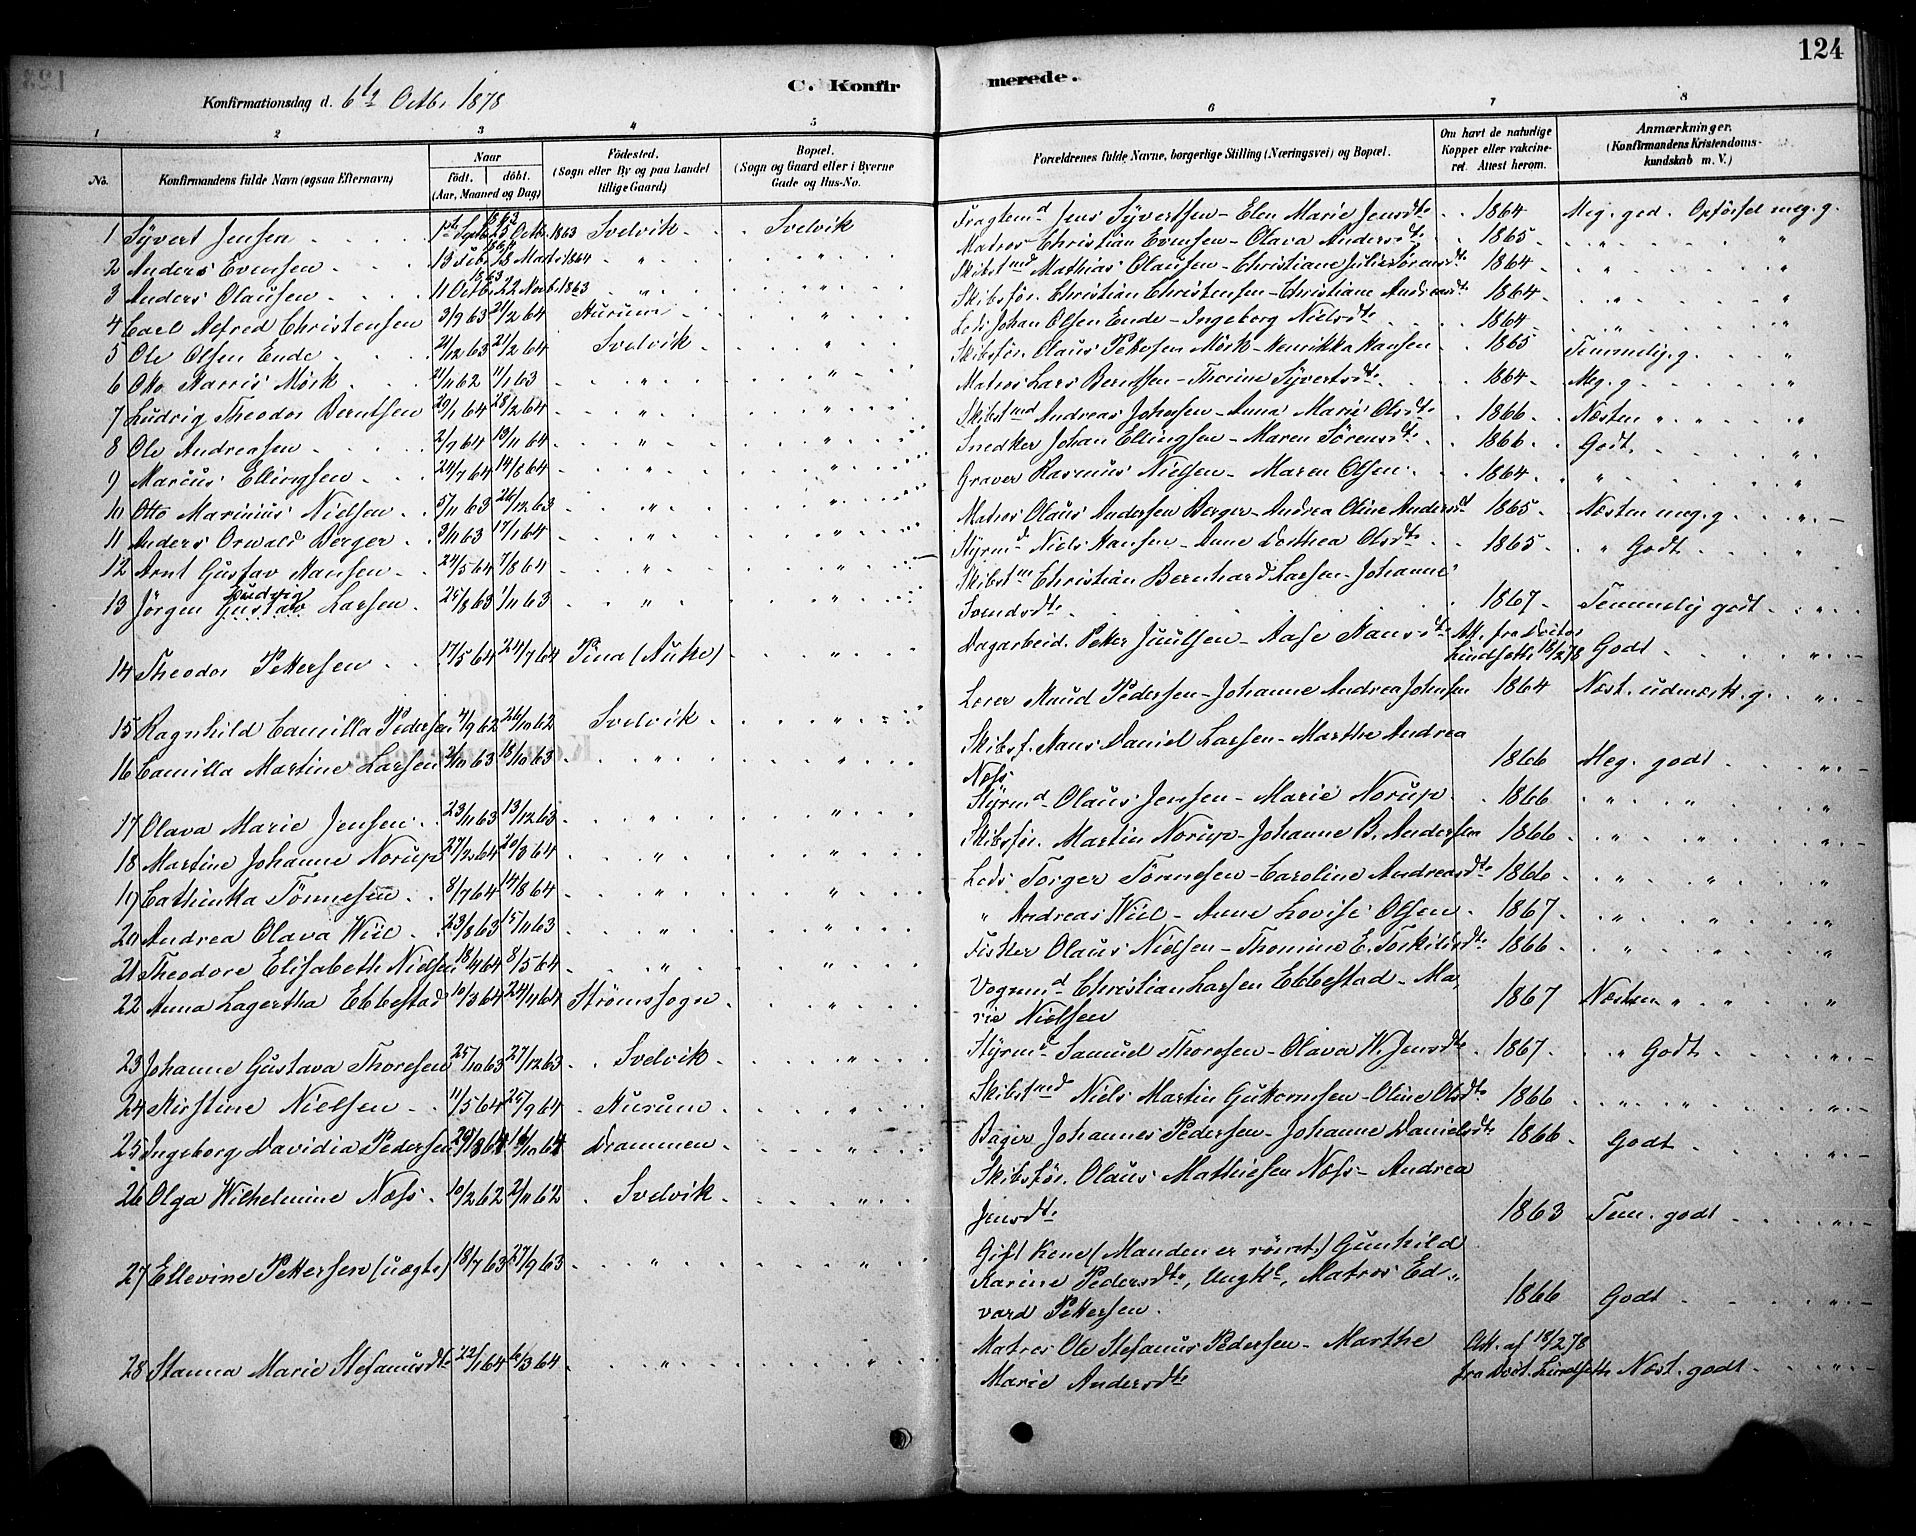 124
C. Konfirmerede.
Konfirmationsdag d. 6te Octb. 1878
1 2 3 4 5 6 7 8
No. Konfirmandens fulde Navn (ogsaa Efternavn) Naar födt. döbt. (Aar, Maaned og Dag) Födested. (Sogn eller By og paa Landet tillige Gaard) Bopæl. (Sogn og Gaard eller i Byerne Gade og Hus-No. Forældrenes fulde Navne, borgerlige Stilling (Næringsvei) og Bopæl. Om havt de naturlige Kopper eller vakcineret. Attest herom. Anmærkninger. (Konfirmandens Kristendomskundskab m. V.)
1 Syvert Jensen 1863 Svelvik Svelvik Fragtemd Jens Syvertsen - Elen Marie Jensdt. 1864 Meg. god. Opførsel meg. g.
2 Anders Evensen 13 Feb. 1864 " " Matros Christian Evensen - Olava Andersdt. 1865 " "
3 Anders Olausen 11 Octb. 1863 22 Novb. 1863 " " Skibstmd Mathias Olausen - Christiane Julie Sørensdt. 1864 " "
4 Carl Alfred Christensen 3/9 63 21/2 64 Hurum " Skibsför. Christian Christensen - Christiane Andreasdt. 1864 " "
5 Ole Olsen Ende 21/12 63 21/2 64 Svelvik " Lods Johan Olsen Ende - Ingeborg Nielsdt. 1864 " "
6 Otto Harris Mörk 21/11 62 11/1 63 " " Skibsför. Olaus Pettersen Mörk - Henrikka Hansen 1865 Temmelig g. "
7 Ludvig Theodor Berntsen 29/1 64 28/2 64 " " Matros Lars Berntsen - Thorine Syvertsdt. 1864 Meg. g. "
8 Ole Andreasen 2/9 64 13/11 64 " " Skibstmd Andreas Johnsen - Anna Marie Olsdt. 1866 Næsten " "
9 Marius Ellingsen 24/7 64 14/8 64 " " Snedker Johan Ellingsen - Maren Sørensdt. 1866 Godt "
10 Otto Marinius Nielsen 5/11 63 26/12 63 " " Graver Rasmus Nielsen - Maren Olsen 1864 " "
11 Anders Orwald Berger 3/11 63 17/1 64 " " Matros Olaus Andersen Berger - Andrea Oline Andersdt 1865 Næsten meg. g. "
12 Arnt Gustav Hansen 24/5 64 7/8 64 " " Styrmd Niels Hansen - Anne Dorthea Olsdt. 1865 " Godt "
13 Jörgen Gustav Ludvig Larsen 25/8 63 1/11 63 " " Skibstm Christian Bernhard Larsen - Johanne
Svendsdt. 1867 Temmelig godt "
14 Theodor Pettersen 17/5 64 24/7 64 " Dagarbeid. Petter Juulsen - Aase Hansdt. Att. fra Doctor
Lindseth 18/2 78 Godt "
15 Ragnhild Camilla Pedersen 4/9 62 26/10 62 Svelvik " Lærer Knud Pedersen - Johanne Andrea Johnsen 1864 Næst. udmærk. g. "
16 Camilla Martine Larsen 2/10 63 18/10 63 " " Skibsf. Hans Daniel Larsen - Marthe Andrea
Næss 1866 Meg. godt "
17 Olava Marie Jensen 23/11 63 13/12 63 " " Styrmd Olaus Jensen - Marie Norup 1866 " " "
18 Martine Johanne Norup 27/2 64 20/3 64 " " Skibsför. Martin Norup - Johanne B. Andersen 1866 " " "
19 Cathinka Tönnesen 8/7 64 14/8 64 " " Lods Torger Tönnesen - Caroline Andreasdt. 1866 " " "
20 Andrea Olava Wiel 23/8 63 15/11 63 " " " Andreas Wiel - Anne Lovise Olsen 1867 " " "
21 Theodore Elisabeth Nielsen 18/4 64 8/5 64 " " Fisker Olaus Nielsen - Thomine E. Torkildsdt. 1866 " " "
22 Anna Lagertha Ebbestad 10/3 64 24/4 64 Strömssogn " Vognmd Christian Larsen Ebbestad - Ma,
rie Nielsen 1867 Næsten " "
23 Johanne Gustava Thoresen 25/10 63 27/12 63 Svelvik " Styrmd Samuel Thoresen - Olava W. Jensdt. 1867 " Godt "
24 Kirstine Nielsen 11/5 64 25/9 64 Hurum " Skibstmd Niels Martin Guttormsen - Oline Olsdt. 1866 " " "
25 Ingeborg Davidia Pedersen 64 Drammen " Bager Johannes Pedersen - Johanne Danielsdt. 1866 Godt "
26 Olga Wilhelmine Næss 10/2 62 2/11 62 Svelvik " Skibsför. Olaus Mathiesen Næss - Andrea
Jensdt. 1863 Tem. godt "
27 Ellevine Pettersen (uægte) 18/7 63 27/9 63 " " Gift Kone (Manden er römt.) Gunhild
Karine Pedersdt., Ungkl, Matros Ed,,
vard Pettersen. 1866 Godt "
28 Stanna Marie Stefanusdt. 22/1 64 6/3 64 " " Matros Ole Stefanus Pedersen - Marthe Att. af 18/2 78
Marie Andersdt. fra Doct. Lindseth Næst. godt "